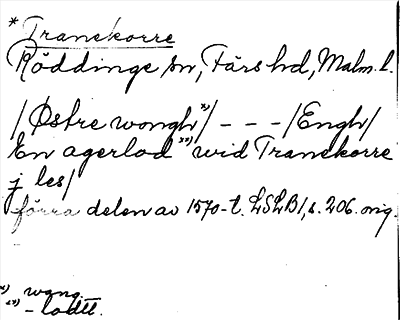 * Tranekorre
Röddinge sn, Färs hd, Malm. l.
/Østre wongh x)/ - - - /Engh/
En agerlod xx) wid Tranekorre
j les/
förra delen av 1570-t. LSLB 1, s. 206. orig.
x) wang.
xx) - lodtt.